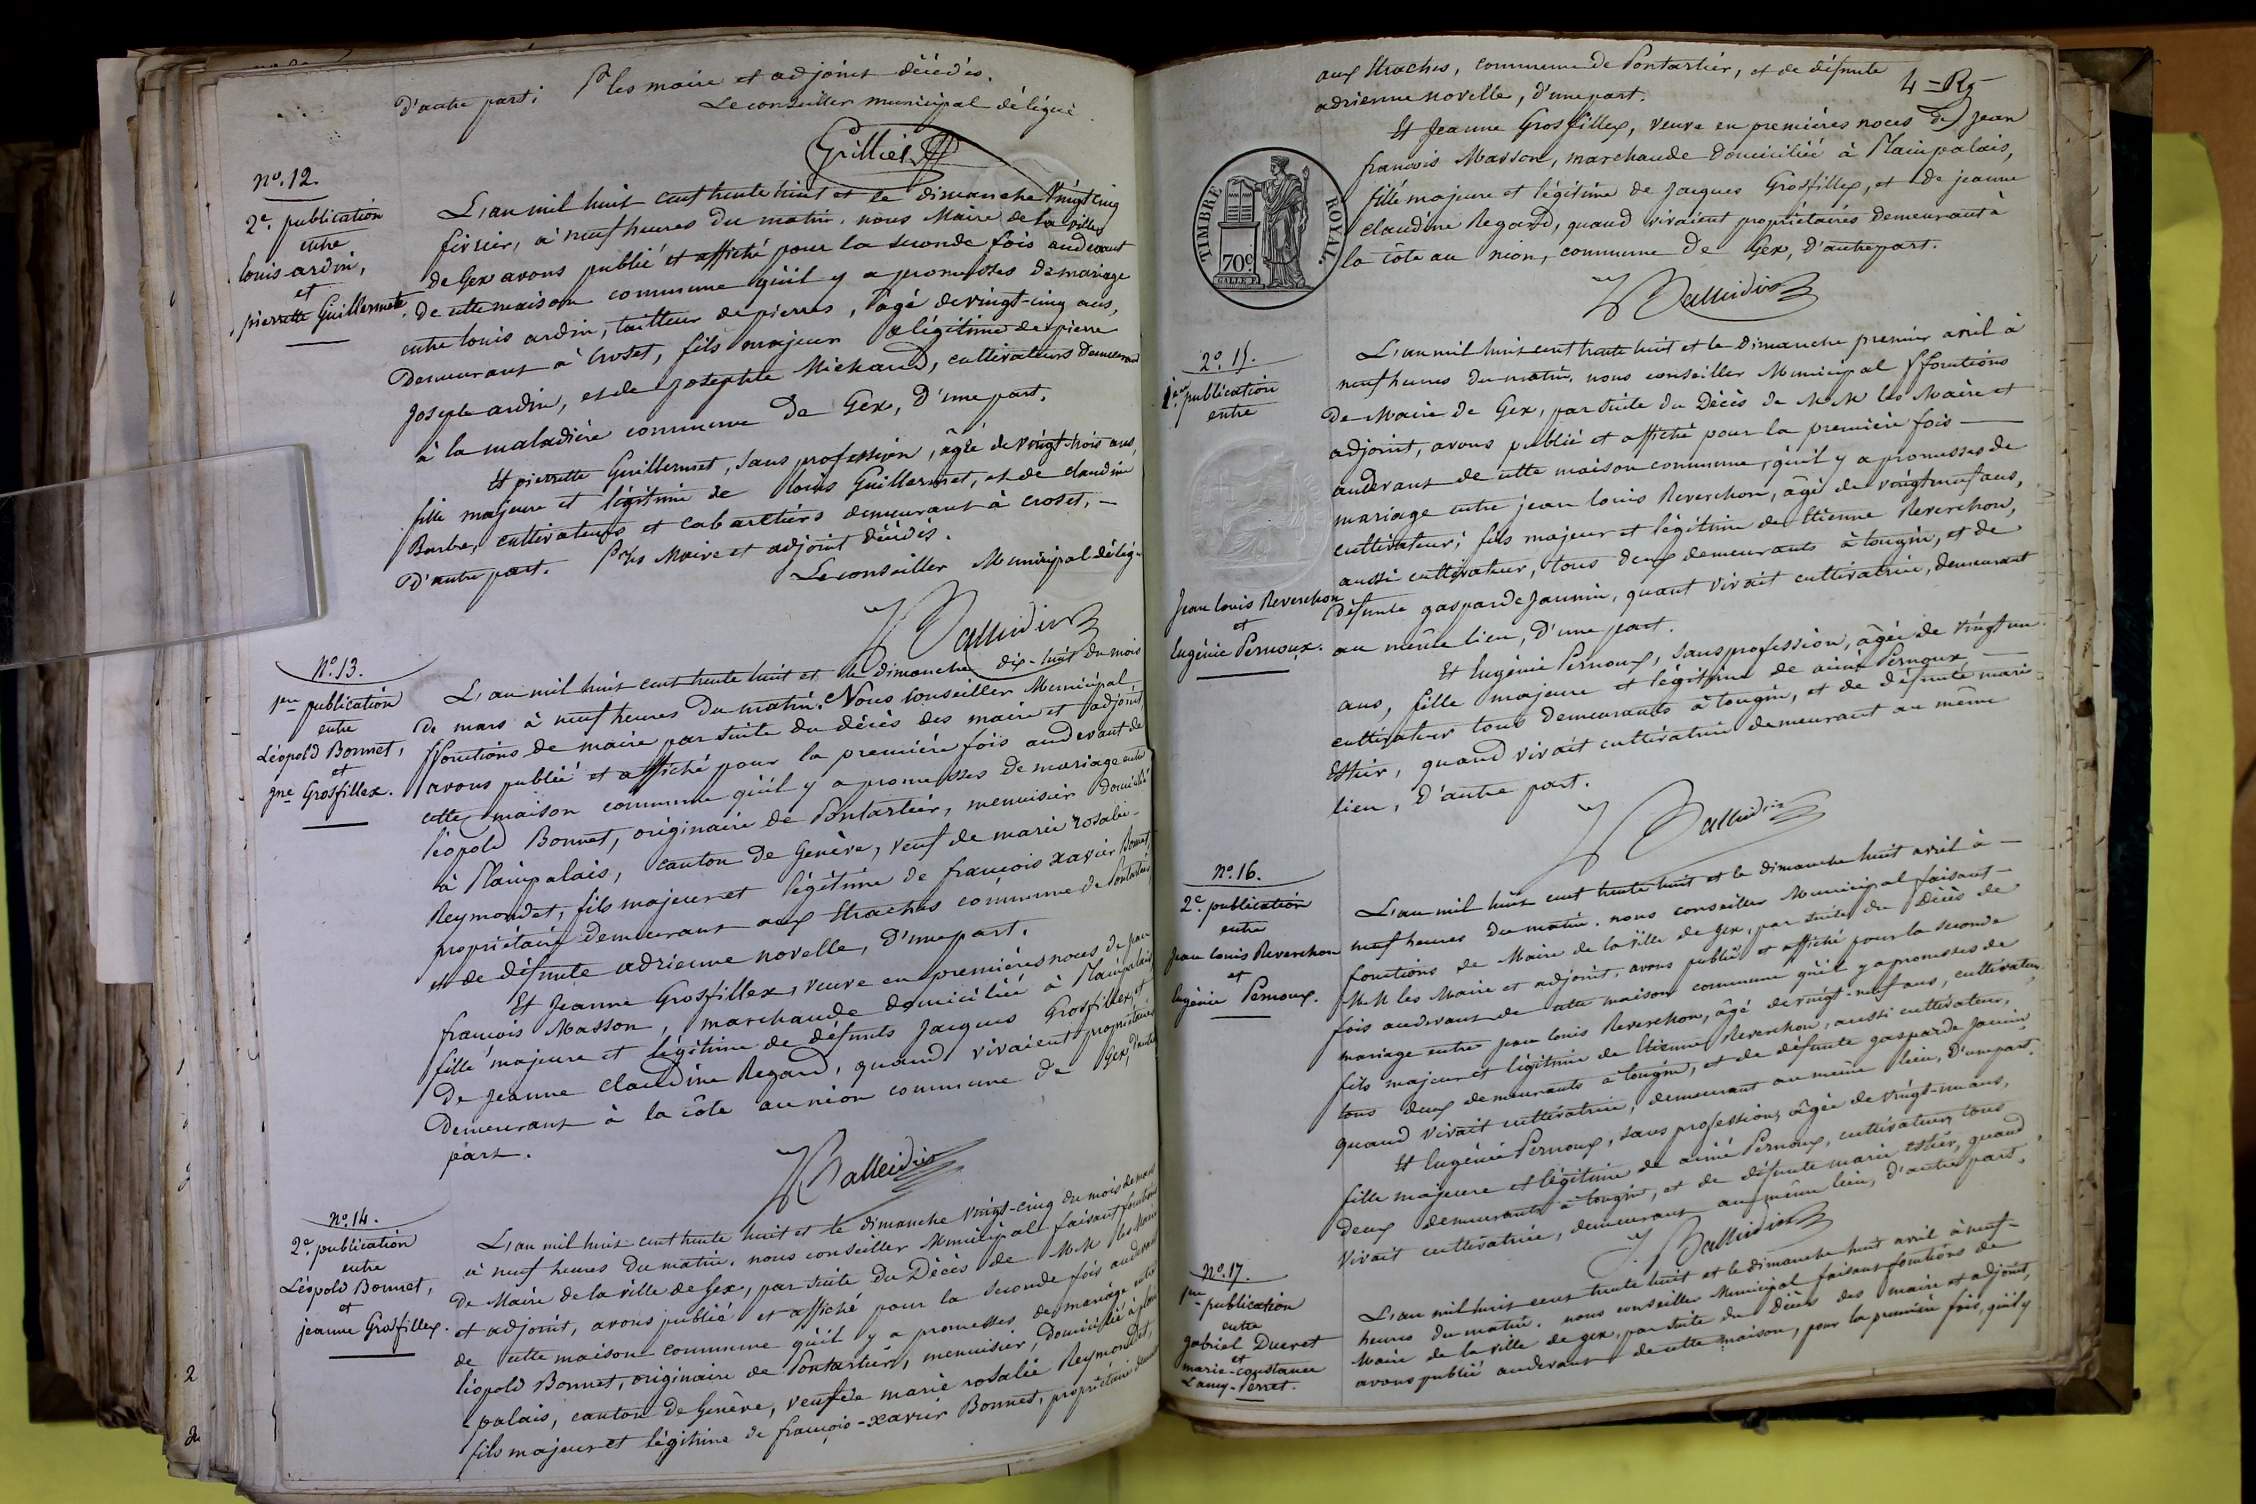 d'autre part. Pr les maire et adjoint décédés.
Le conseiller municipal délégué
Grilliet
No. 12.
2e. publication
entre
louis ardin,
et
pierrette Guillermet.
L'an mil huit cent trente huit et le dimanche vingt cinq
février, à neuf heures du matin, nous Maire de la ville
de Gex avons publié et affiché pour la seconde fois audevant
de cette maison commune qu'il y a promesses de mariage
entre louis ardin, tailleur de pierres, âgé de vingt-cinq ans,
demeurant à Croset, fils majeur & légitime de pierre
Joseph ardin, et de Josephte Michaud, cultivateurs demeurant
à la maladière commune de Gex, d'une part.
Et pierrette Guillermet, sans profession, âgée de vingt-trois ans,
fille majeure et légitime de louis Guillermet, et de claudine
Barbe, cultivateurs et cabaretiers demeurant à croset, —
d'autre part. Pr les Maire et adjoint décédés.
Le conseiller Municipal délég
No. 13.
1ere publication
entre
Léopold Bonnet,
et
jne Grosfillex.
L'an mil huit cent trente huit et le dimanche dix-huit du mois
de mars à neuf heures du matin. Nous Conseiller Municipal
ffonctions de maire par suite du décès des maire et adjoint
avons publié et affiché pour la première fois audevant de
cette maison commune qu'il y a promesses de mariage entre
léopold Bonnet, originaire de Pontarlier, menuisier domicilié
à Plainpalais, canton de Genève, veuf de marie rosalie
Reymondet, fils majeur et légitime de françois xavier Bonnet,
propriétaire demeurant aux Etraches commune de Pontarlier,
et de défunte adrienne novelle, d'une part.
Et Jeanne Grosfillex, veuve en premières noces de jean
françois Masson, marchande domiciliée à Plainpalais,
fille majeure et légitime de défunts Jacques Grosfillex, et
de Jeanne claudine Regard, quand vivaient propriétaires
demeurant à la côte au nion commune de Gex, d'autre
part.
No. 14.
2e. publication
entre
Léopold Bonnet,
et
jeanne Grosfillex.
L'an mil huit cent trente huit et le dimanche vingt-cinq du mois de mars
à neuf heures du matin, nous conseiller Municipal faisant fonctions
de Maire de la ville de Gex, par suite du Décès de MM les Maire
et adjoint, avons publié et affiché pour la seconde fois audevant
de cette maison commune qu'il y a promesses de mariage entre
léopold Bonnet, originaire de Pontarlier, menuisier, domicilié à plain
-palais, canton de Genève, veuf de marie rosalie Reymondet,
fils majeur et légitime de françois-xavier Bonnet, propriétaire
4 =
aux Etraches, commune de Pontarlier, et de défunte
adrienne novelle, d'une part.
Et Jeanne Grosfillex, veuve en premières noces de jean
françois Masson, marchande domiciliée à Plainpalais,
fille majeure et légitime de Jacques Grosfillex, et de jeanne
claudine Regard, quand vivaient propriétaires demeurant à
la côte au nion, commune de Gex, d'autre part.
TIMBRE ROYAL.
70c
2o. 15.
1ere publication
entre
Jean louis Reverchon
et
Eugénie Pernoux.
L'an mil huit cent trente huit et le dimanche premier avril à
neuf heures du matin, nous conseiller Municipal ffonctions
de Maire de Gex, par suite du Décès de MM les Maire et
adjoint, avons publié et affiché pour la première fois —
audevant de cette maison commune, qu'il y a promesses de
mariage entre jean louis Reverchon, âgé de vingt neuf ans,
cultivateur, fils majeur et légitime de Etienne Reverchon,
aussi cultivateur, tous deux demeurants à tougin, et de
défunte gasparde Jaunin, quant vivait cultivatrice, demeurant
au même lieu, d'une part.
Et Eugénie Pernoux, sans profession, âgée de vingt un
ans, fille majeure et légitime de aimé Pernoux —
cultivateur tous demeurants à tougin, et de défunte marie
Esther, quand vivait cultivatrice demeurant au même
lieu, d'autre part.
No. 16.
2e. publication
entre
Jean louis Reverchon
et
Eugénie Pernoux.
L'an mil huit cent trente huit et le dimanche huit avril à —
neuf heures du matin. nous conseiller Municipal faisant —
fonctions de Maire de la ville de Gex, par suite du Décès de
MM les Maire et adjoint, avons publié et affiché pour la seconde
fois audevant de cette maison commune qu'il y a promesses de
mariage entre jean louis Reverchon, âgé de vingt-neuf ans, cultivateur
fils majeur et légitime de Etienne Reverchon, aussi cultivateur,
tous deux demeurants à tougin, et de défunte gasparde Jaunin
quand vivait cultivatrice, demeurant au même lieu, d'une part.
Et Eugénie Pernoux, sans profession, âgée de vingt-un ans,
fille majeure et légitime de aimé Pernoux, cultivateur, tous
deux demeurants à tougin, et de défunte marie Esther, quand
vivait cultivatrice, demeurant au même lieu, d'autre part.
No. 17.
1ere publication
entre
gabriel Ducret
et
marie-constance
Lamy-Perret.
L'an mil huit cent trente huit et le dimanche huit avril à neuf —
heures du matin. nous conseiller Municipal faisant fonctions de
Maire de la ville de gex, par suite du décès des maire et adjoint,
avons publié audevant de cette maison, pour la première fois, qu'il y